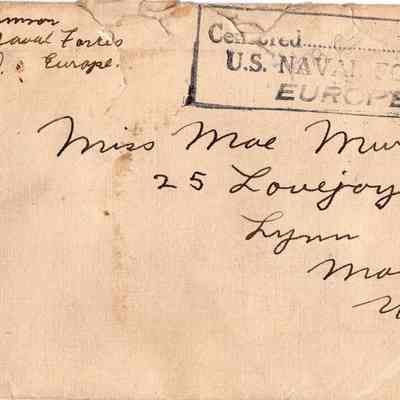 Naval Forces
Europe.
Censored
U.S. NAVAL FO
EUROPE
Miss Mae Mur
25 Lovejoy
Lynn
Ma
U